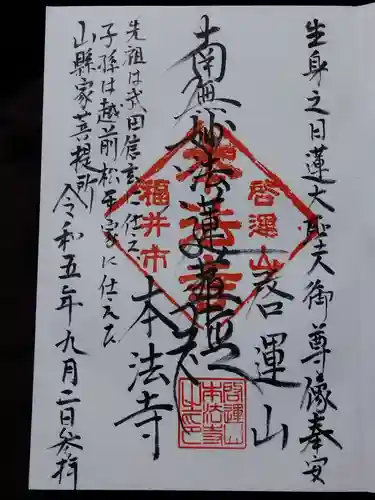 生身之日蓮大聖人御尊像奉安
啓運山
南無妙法蓮華経
本法寺
先祖は武田信玄に仕え、
子孫は越前松平家に仕えた
山縣家菩提所
令和五年九月二日参拝
啓運山
本法寺
福井市
啓運山
本法寺